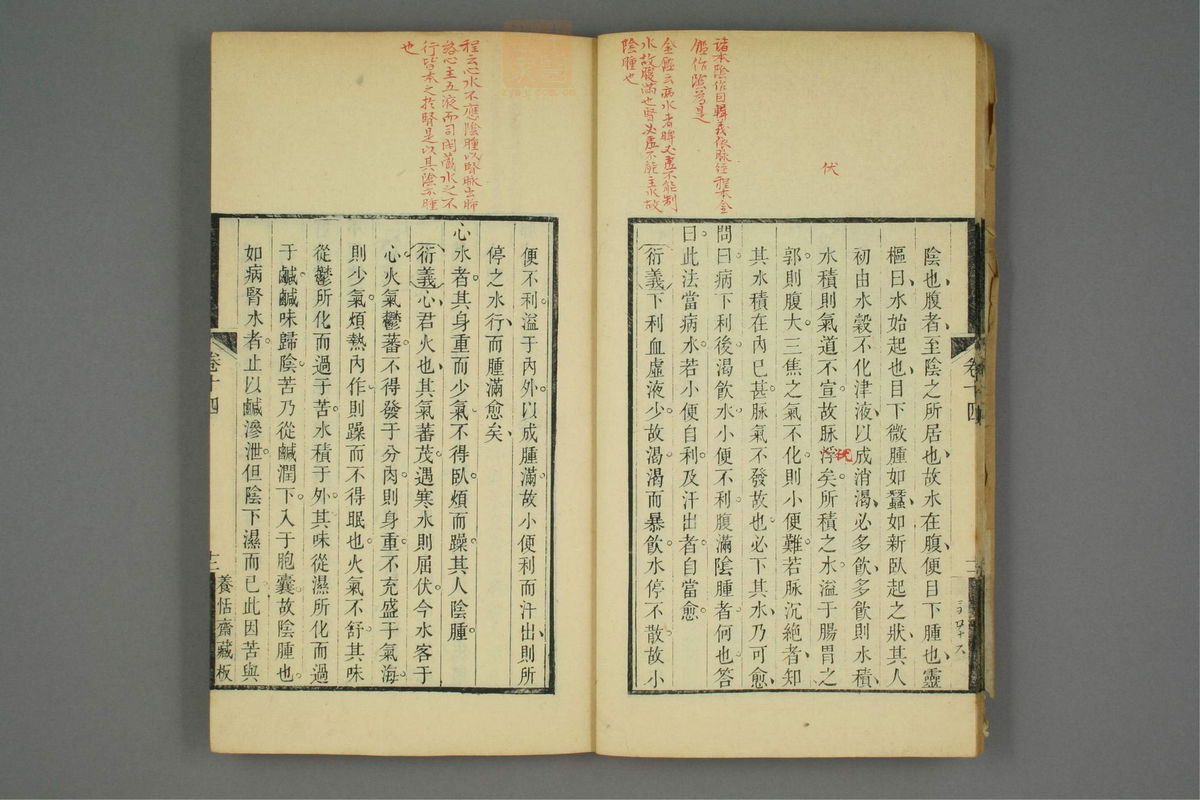 諸本陰作目輯義依脉經程本金
鑑作陰爲是
金鑑云病水者脾必虛不能制
水故腹滿也腎必虛不能主水故
陰腫也
伏
陰也腹者至陰之所居也故水在腹便目下腫也靈
樞曰水始起也目下微腫如蠶如新臥起之狀其人
初由水穀不化津液以成消渴必多飮多飮則水積
水積則氣道不宣故脉浮矣所積之水溢于腸胃之
沉
郭則腹大三焦之氣不化則小便難若脉沉絕者知
其水積在內已甚脉氣不發故也必下其水乃可愈
問曰病下利後渴飮水小便不利腹滿陰腫者何也答
曰此法當病水若小便自利及汗出者自當愈
衍義下利血虛液少故渴渴而暴飮水停不散故小
卷十四
三
程云心水不應陰腫以腎脉出肺
絡心主五液而司閉藏水之不
行皆本之於腎是以其陰亦腫
也
便不利溢于內外以成腫滿故小便利而汗出則所
停之水行而腫滿愈矣
心水者其身重而少氣不得臥煩而躁其人陰腫
衍義心君火也其氣蕃茂遇寒水則屈伏今水客于
心火氣鬱蕃不得發于分肉則身重不充盛于氣海
則少氣煩熱內作則躁而不得眠也火氣不舒其味
從鬱所化而過于苦水積于外其味從濕所化而過
于鹹鹹味歸陰苦乃從鹹潤下入于胞囊故陰腫也
如病腎水者止以鹹滲泄但陰下濕而已此因苦與
卷十四
三
養恬齋藏板